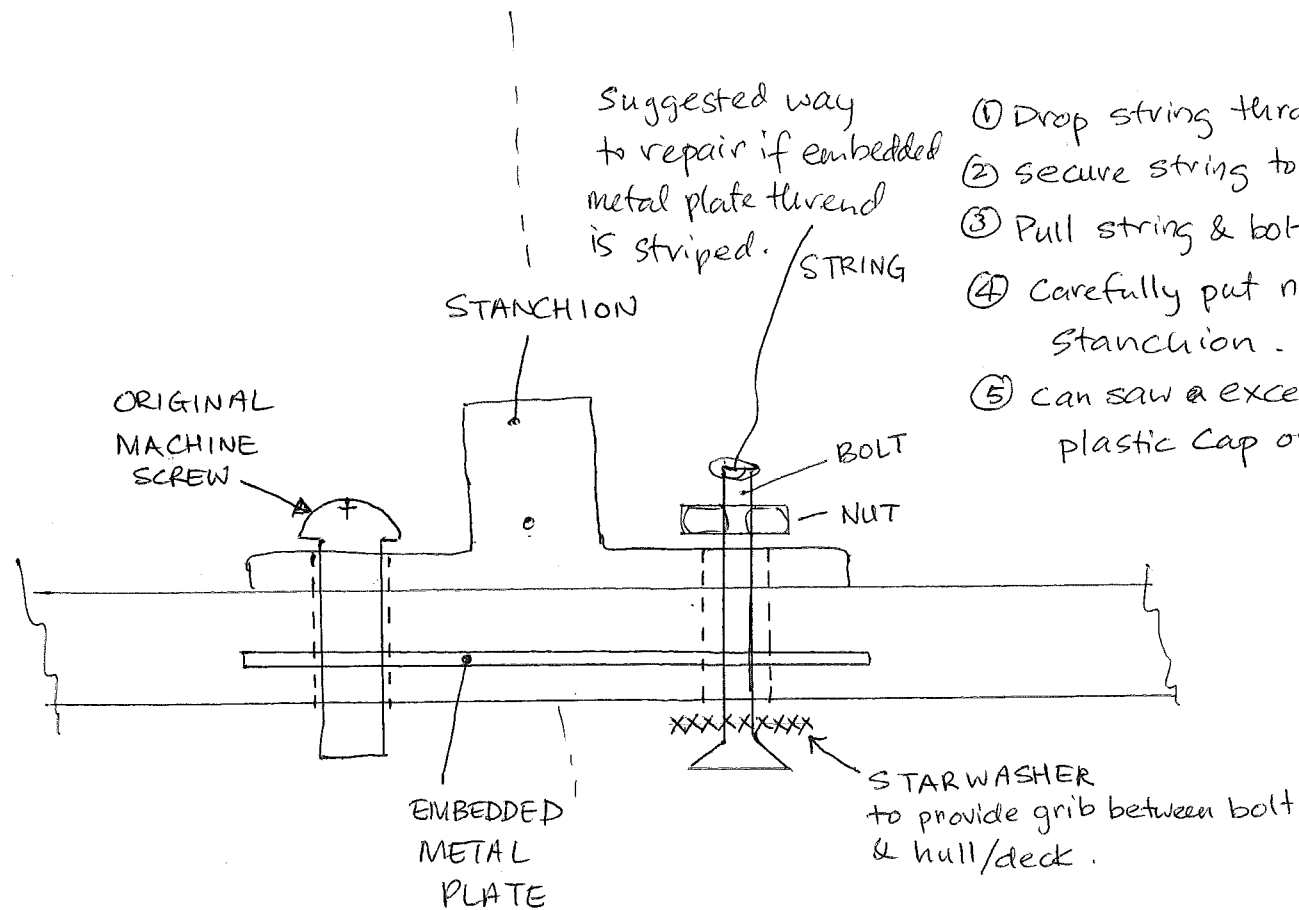 Suggested way
to repair if embedded
metal plate thrend
is striped.
① Drop string thro
② secure string to
③ Pull string & bol
④ Carefully put n
Stanchion.
⑤ can saw a exce
plastic cap o
STRING
STANCHION
ORIGINAL
MACHINE
SCREW
BOLT
NUT
EMBEDDED
METAL
PLATE
STARWASHER
to provide grib between bolt
& hull/deck.